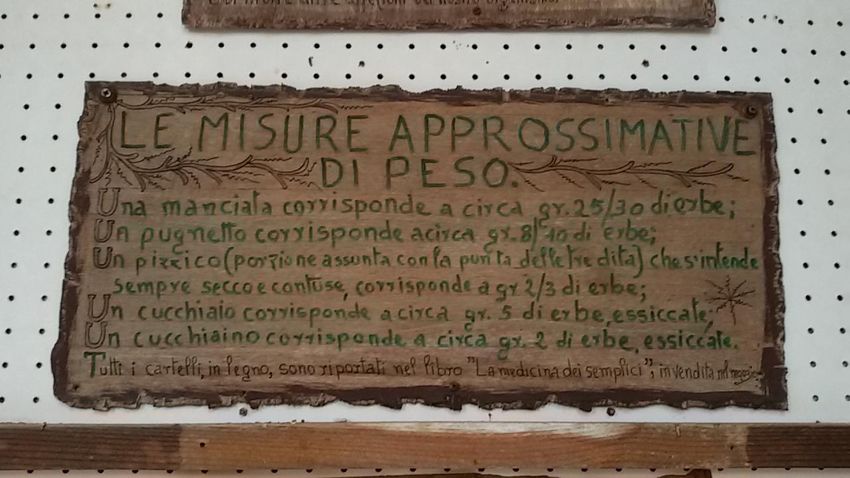 LE MISURE APPROSSIMATIVE
DI PESO.
Una manciata corrisponde a circa gr. 25/30 di erbe;
Un pugnetto corrisponde a circa gr. 8/10 di erbe;
Un pizzico (porzione assunta con la punta delle tre dita) che s'intende
sempre secco e contuse, corrisponde a gr 2/3 di erbe;
Un cucchiaio corrisponde a circa gr. 5 di erbe, essiccate;
Un cucchiaino corrisponde a circa gr. 2 di erbe, essiccate.
Tutti i cartelli, in legno, sono riportati nel libro "La medicina dei semplici"; in vendita nel negozio